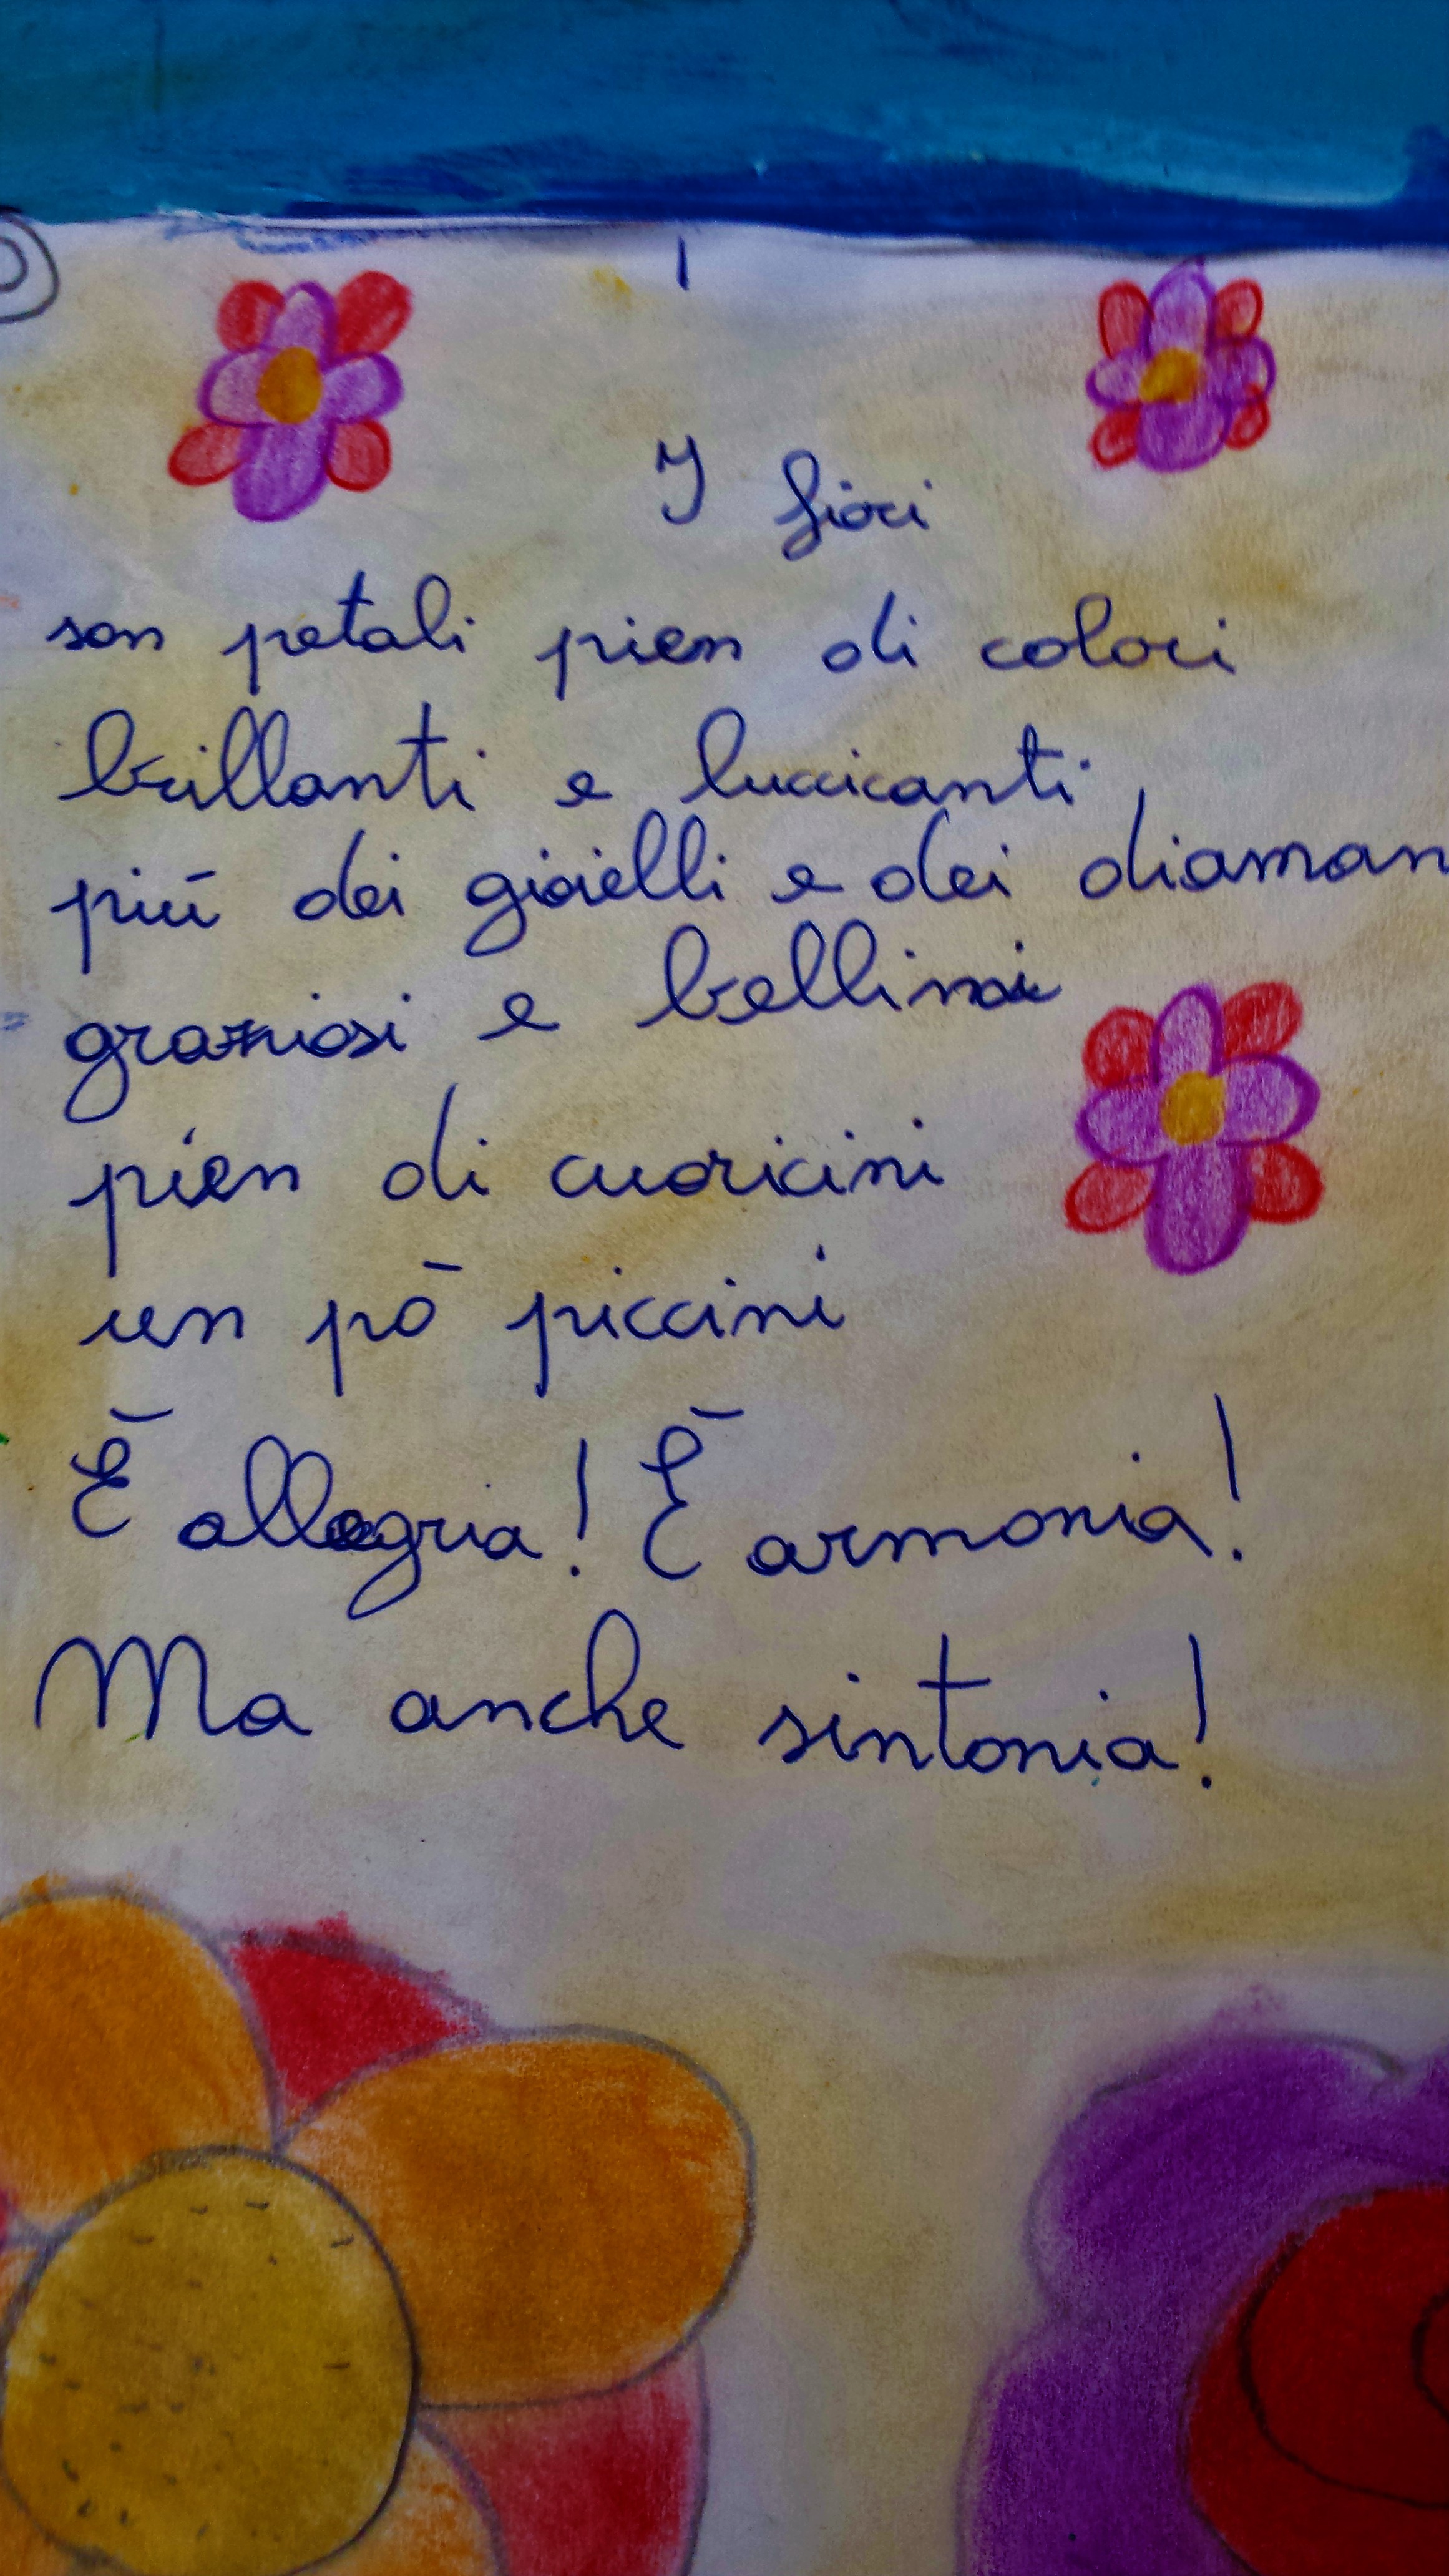 I fiori
son petali pien di colori
brillanti e luccicanti
più dei gioielli e dei diaman
graziosi e bellini
pien di cuoricini
un pò piccini
È allegria! È armonia!
Ma anche sintonia!